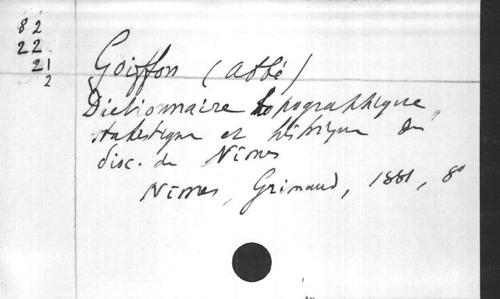 82
22
21
2
Goiffon (abbé)
Dictionnaire topographique,
statistique et historique du
dioc. de Nîmes
Nîmes, Grimaud, 1881, 8°